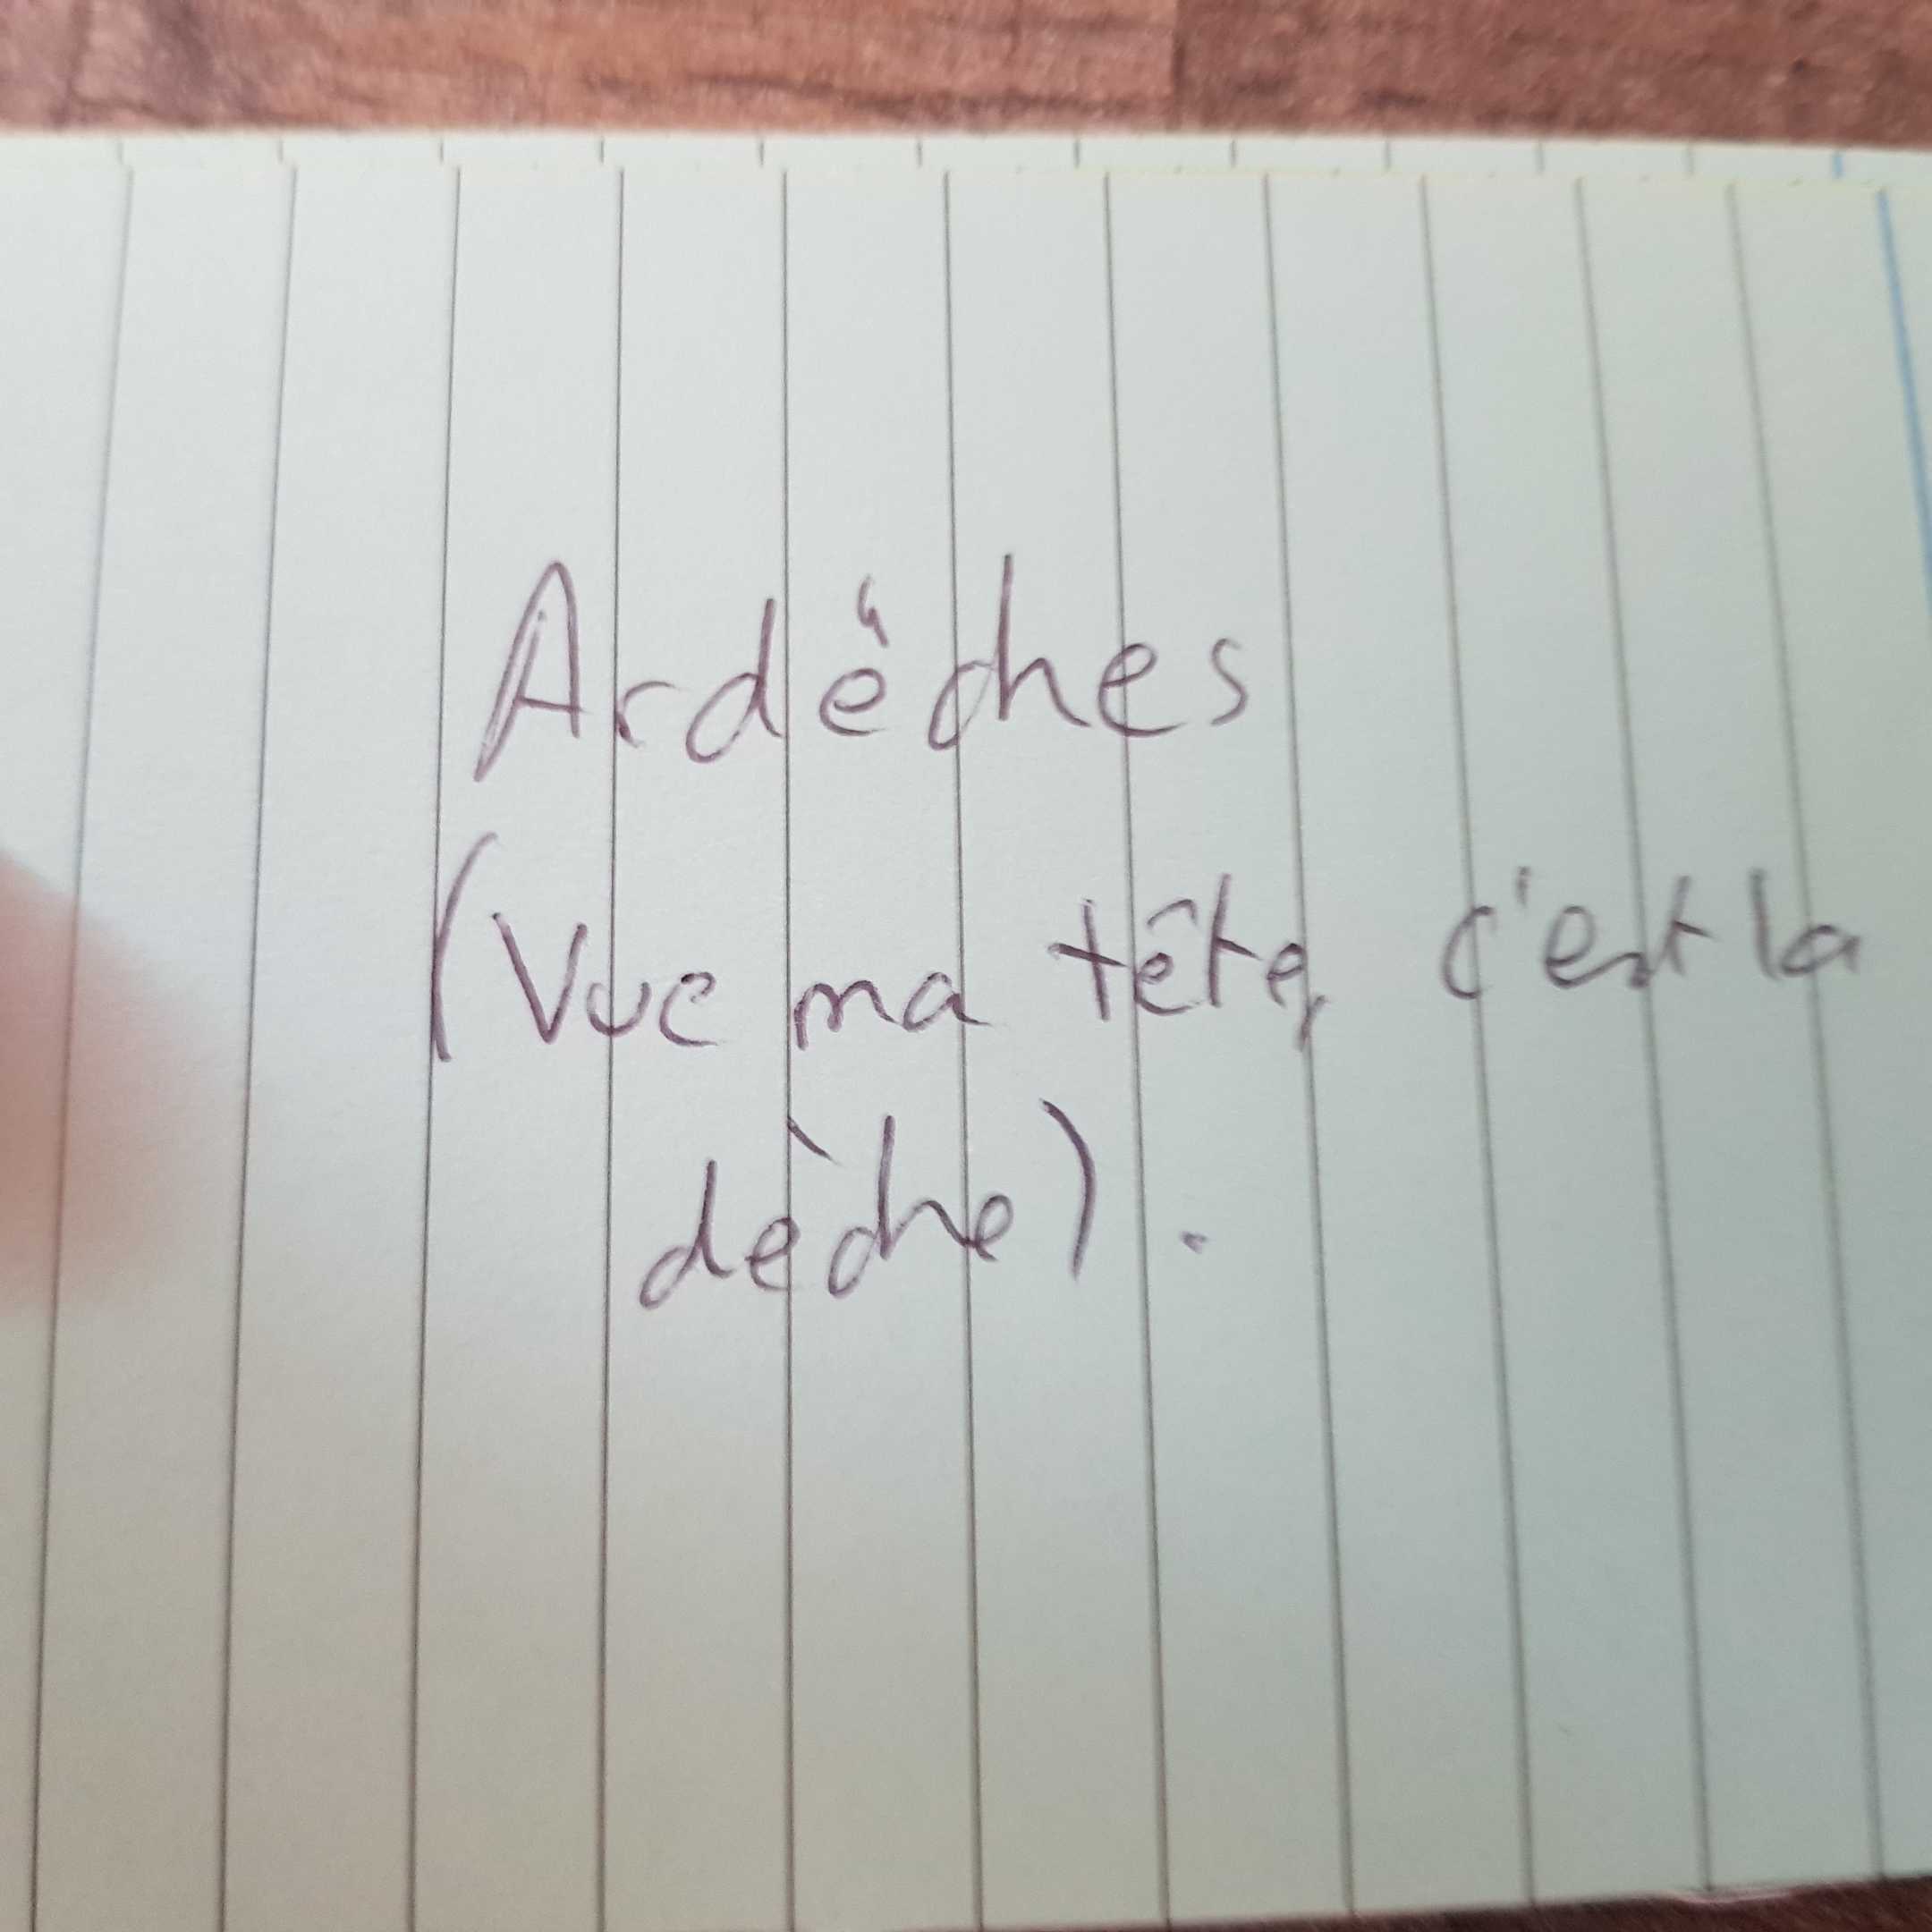 Ardèches
(Vue ma tête, c'est la
dèche).